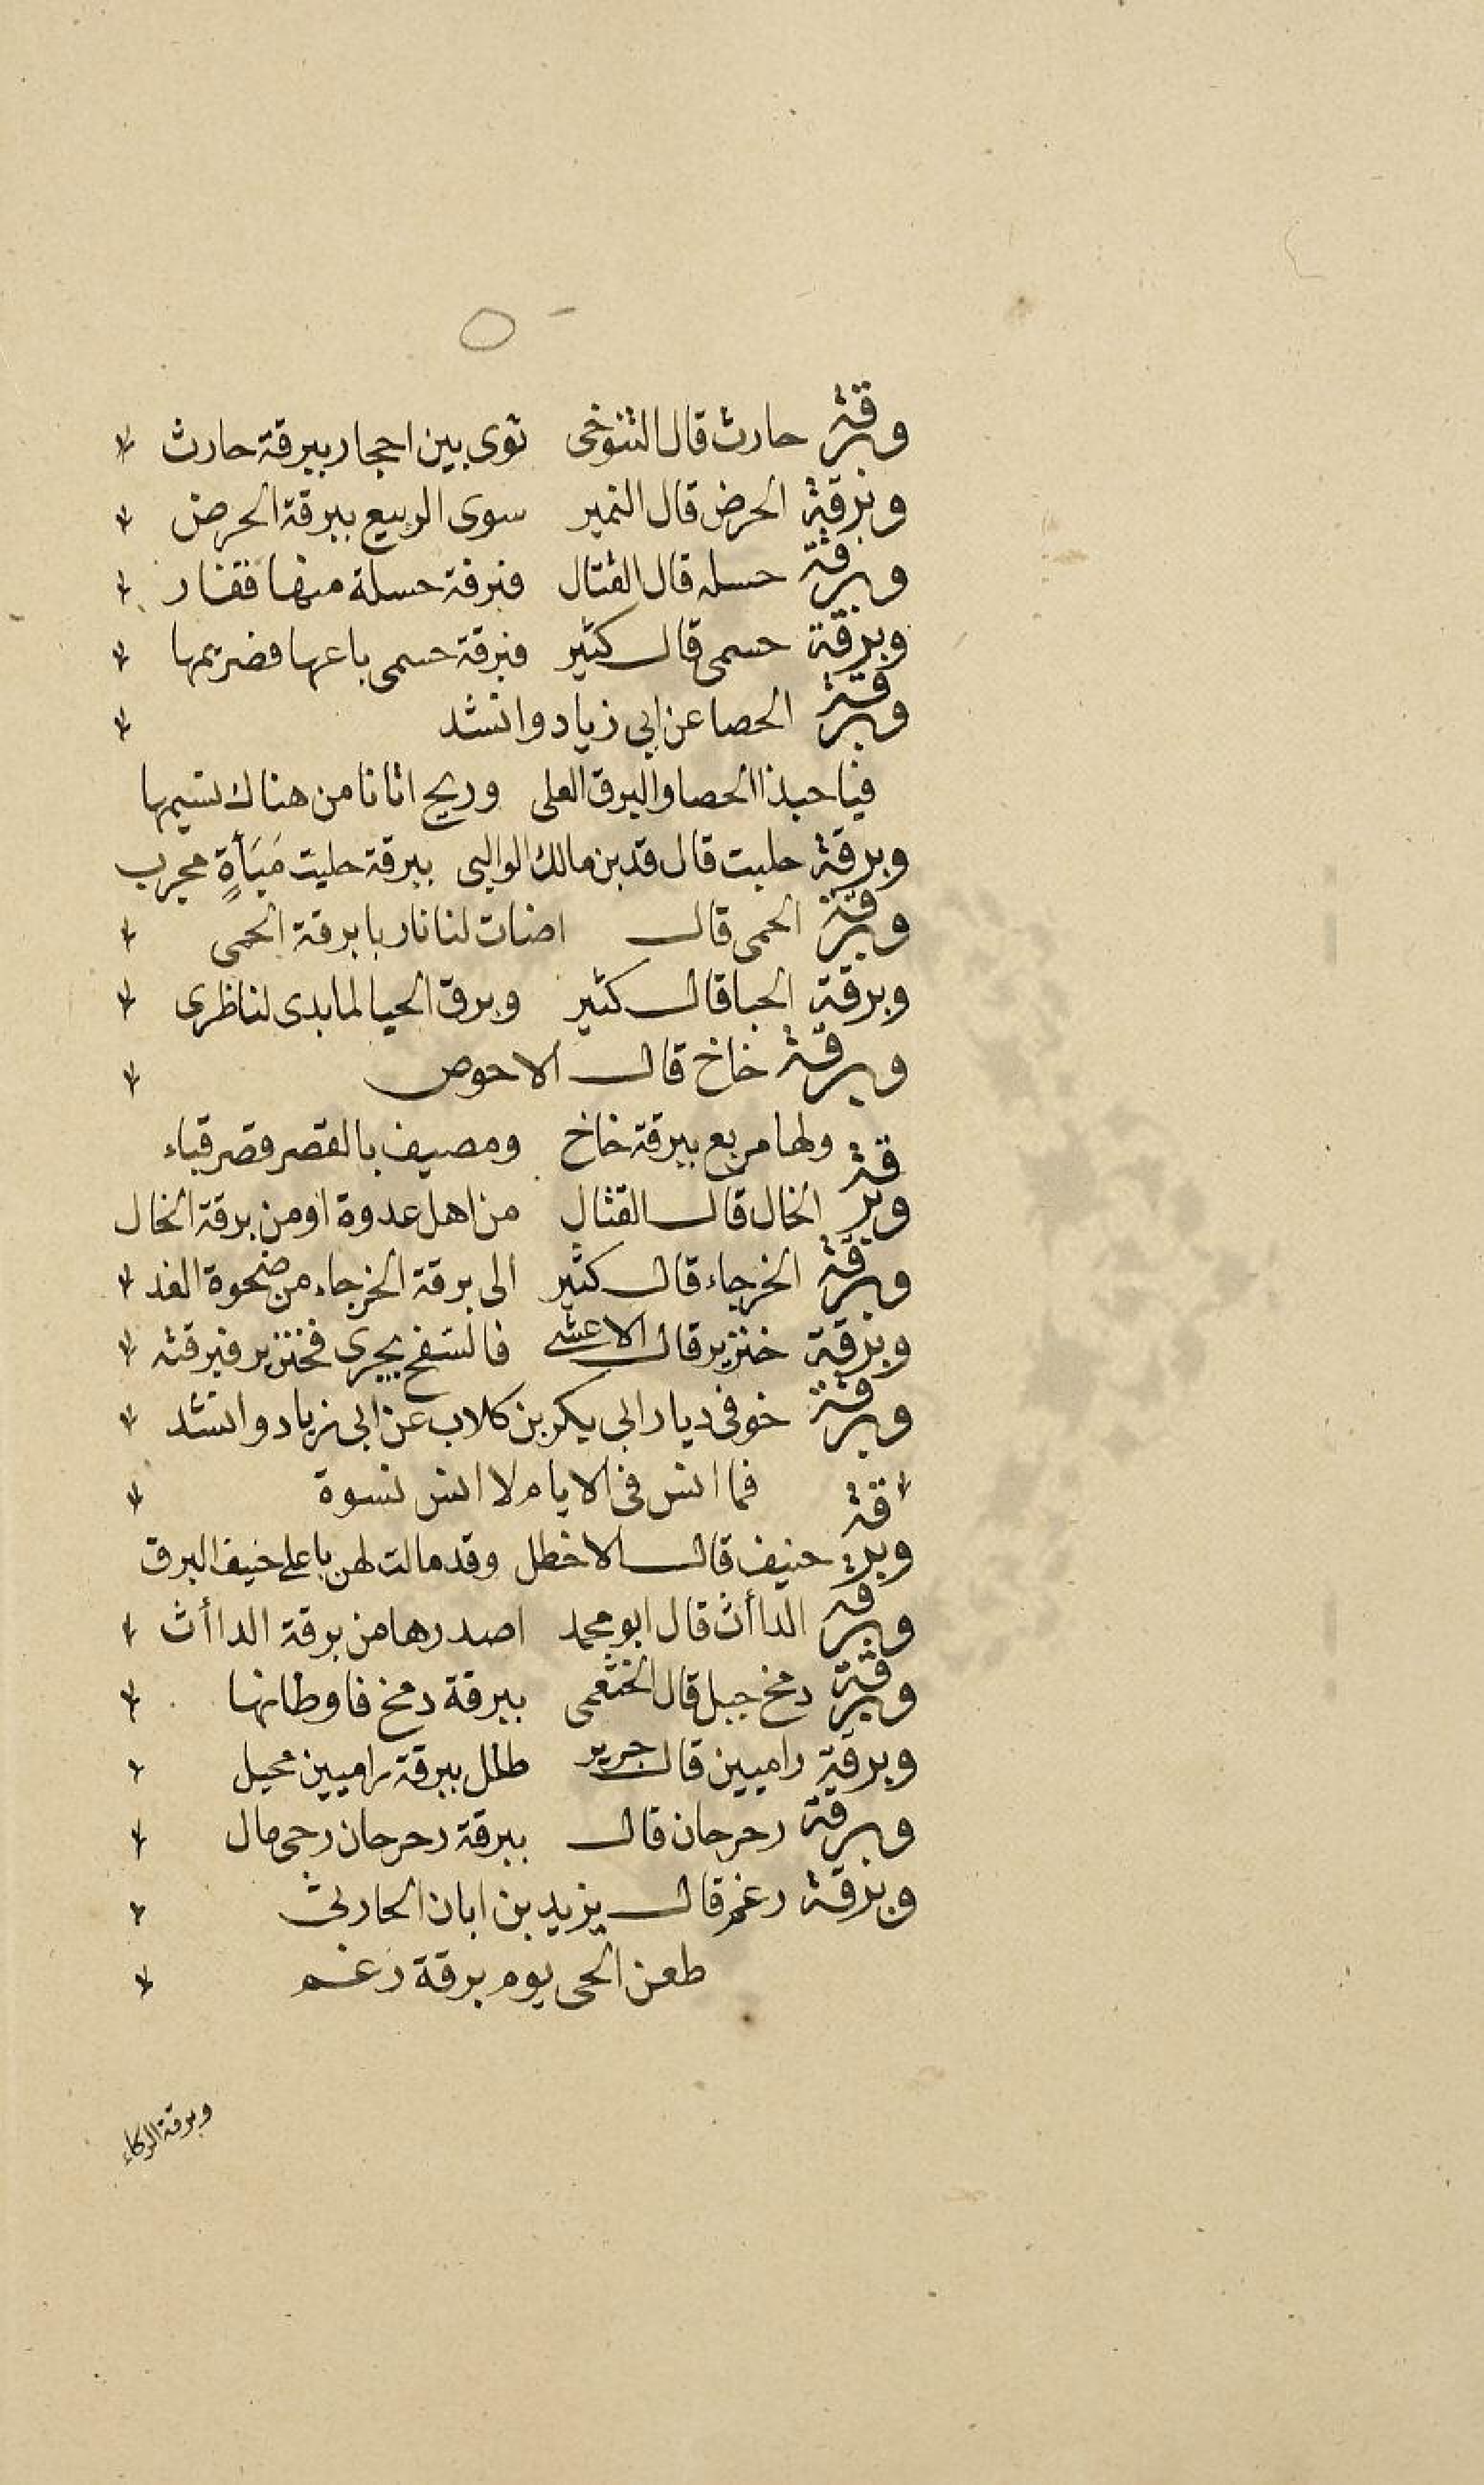 وبرقة حارث قال التنوخى ثوى بين احجار ببرقة حارث
وبرقة الحرض قال النمير سوى الربيع ببرقة الحرض
وبرقة حسله قال القتال فبرقة حسلة منها فقفار
وبرقة حسمى قال كثير فبرقة حسمى باعها فضريمها
وبرقة الحصا عن ابى زياد وانشد
فيا حبذا الحصا والبرق العلى وريح اتانا من هناك نسيمها
وبرقة حليت قال قد بن مالك الوالبى ببرقة حليت مَبَأةٍ مجرب
وبرقة الحمى قال اضات لنا نار بابرقة الحمى
وبرقة الحبا قال كثير وبرق الحيا لما بدى لناظرى
وبرقة خاخ قال الاحوص
ولها مربع ببرقة خاخ ومصيف بالقصر قصر قباء
وبرقة الخال قال القتال من اهل عدوة او من برقة الخال
وبرقة الخرجاء قال كثير الى برقة الخرجاء من ضحوة الغد
وبرقة خنزير قال الاعشى فالسفح يجرى فخنزير فبرقته
وبرقة خو فى ديار ابى بكر بن كلاب عن ابى زياد وانشد
فما انس فى الايام لا انس نسوة
وبرقة حنيف قال الاخطل وقد مالت لهن باعلى خنيف البرق
وبرقة الداأث قال ابو محمد اصدرها من برقة الداأث
وبرقة دمخ جبل قال الخثعمى ببرقة دمخ فاوطانها
وبرقة راميين قال جرير طلل ببرقة راميين محيل
وبرقة رحرحان قال ببرقة رحرحان رحى مال
وبرقة رغم قال يزيد بن ابان الحارثى
طعن الحى يوم برقة رَغم
وبرقة الركاء